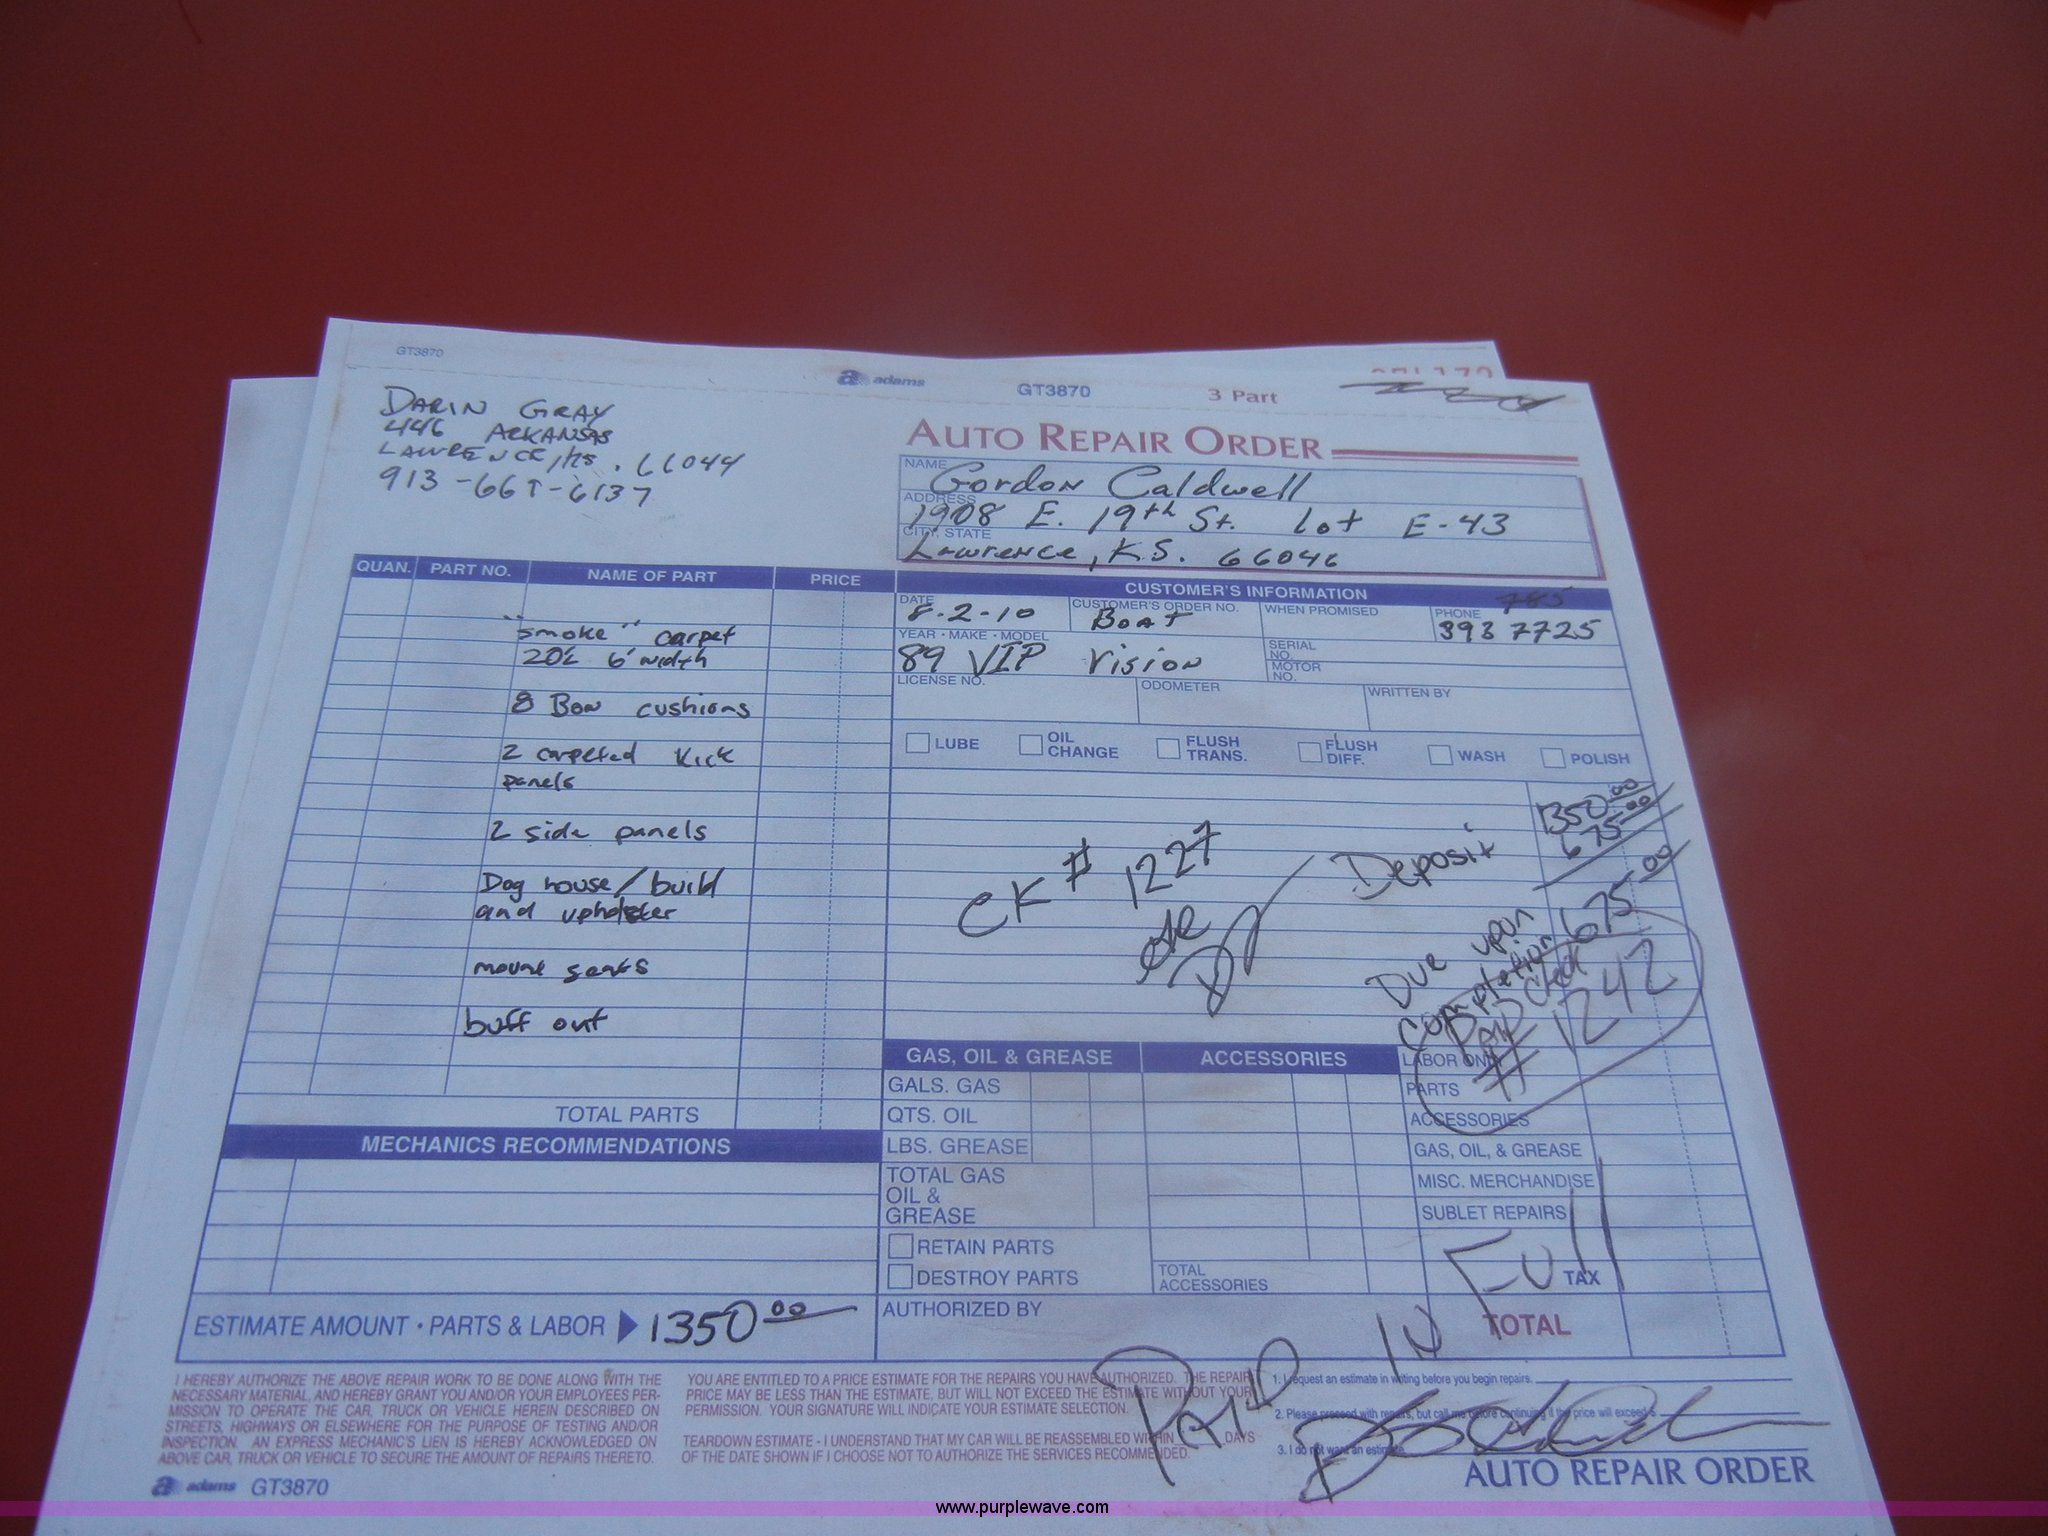 GT3870
adams GT3870 3 Part
DARIN GRAY
446 ARKANSAS
LAWRENCE, KS. 66044
913-661-6137
AUTO REPAIR ORDER
NAME Gordon Caldwell
ADDRESS 1908 E. 19th St. Lot E-43
CITY, STATE Lawrence, K.S. 66046
QUAN. PART NO. NAME OF PART PRICE
CUSTOMER'S INFORMATION
DATE 8-2-10 CUSTOMER'S ORDER NO. Boat WHEN PROMISED PHONE 785 393 7725
YEAR · MAKE · MODEL 89 VIP Vision SERIAL NO. MOTOR NO.
LICENSE NO. ODOMETER WRITTEN BY
LUBE OIL CHANGE FLUSH TRANS. FLUSH DIFF. WASH POLISH
"smoke" carpet
6' width
8 Bow cushions
2 carpeted Kick
panels
2 side panels
Dog house/build
and upholster
mount seats
buff out
1350.00
CK # 1227 Deposit 675.00
675.00
Due upon
completion
PAID Check
# 1242
TOTAL PARTS
GAS, OIL & GREASE ACCESSORIES LABOR ONLY
GALS. GAS PARTS
QTS. OIL ACCESSORIES
LBS. GREASE GAS, OIL, & GREASE
TOTAL GAS OIL & GREASE MISC. MERCHANDISE
SUBLET REPAIRS
MECHANICS RECOMMENDATIONS
RETAIN PARTS
DESTROY PARTS TOTAL ACCESSORIES TAX
ESTIMATE AMOUNT · PARTS & LABOR 1350.00 AUTHORIZED BY TOTAL
PAID IN Full
I HEREBY AUTHORIZE THE ABOVE REPAIR WORK TO BE DONE ALONG WITH THE
NECESSARY MATERIAL, AND HEREBY GRANT YOU AND/OR YOUR EMPLOYEES PER-
MISSION TO OPERATE THE CAR, TRUCK OR VEHICLE HEREIN DESCRIBED ON
STREETS, HIGHWAYS OR ELSEWHERE FOR THE PURPOSE OF TESTING AND/OR
INSPECTION. AN EXPRESS MECHANIC'S LIEN IS HEREBY ACKNOWLEDGED ON
ABOVE CAR, TRUCK OR VEHICLE TO SECURE THE AMOUNT OF REPAIRS THERETO.
YOU ARE ENTITLED TO A PRICE ESTIMATE FOR THE REPAIRS YOU HAVE AUTHORIZED. THE REPAIR
PRICE MAY BE LESS THAN THE ESTIMATE, BUT WILL NOT EXCEED THE ESTIMATE WITHOUT YOUR
PERMISSION. YOUR SIGNATURE WILL INDICATE YOUR ESTIMATE SELECTION.
TEARDOWN ESTIMATE - I UNDERSTAND THAT MY CAR WILL BE REASSEMBLED WITHIN DAYS
OF THE DATE SHOWN IF I CHOOSE NOT TO AUTHORIZE THE SERVICES RECOMMENDED.
1. I request an estimate in writing before you begin repairs.
2. Please proceed with repairs, but call me before continuing if the price will exceed
3. I do not want an estimate.
adams GT3870 AUTO REPAIR ORDER
www.purplewave.com